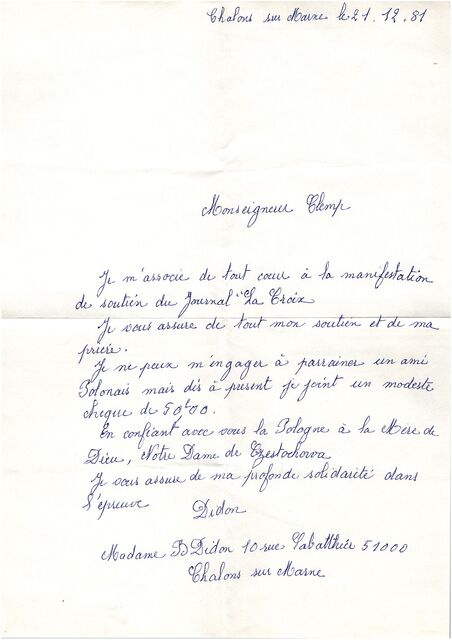 Chalons sur Marne le 21.12.81
Monseigneur Glemp
Je m'associe de tout coeur à la manifestation
de soutien du Journal "La Croix
Je vous assure de tout mon soutien et de ma
prière.
Je ne peux m'engager à parrainer un ami
Polonais mais dès à present je joint un modeste
cheque de 50F00.
En confiant avec vous la Pologne à la Mère de
Dieu, Notre Dame de Czestochowa
Je vous assure de ma profonde solidarité dans
l'épreuve
Didon
Madame B Didon 10 rue 51000
Chalons sur Marne